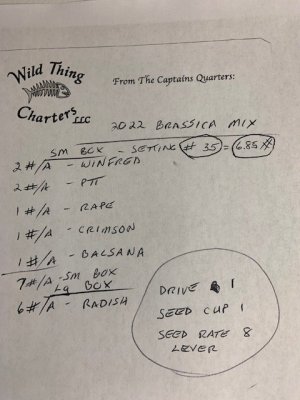 Wild Thing
Charters LLC
From The Captains Quarters:
2022 BRASSICA MIX
SM BOX - SETTING # 35 = 6.85 #
2 #/A - WINFRED
2 #/A - PTT
1 #/A - RAPE
1 #/A - CRIMSON
1 #/A - BALSANA
7 #/A - SM BOX
Lg BOX
6 #/A - RADISH
DRIVE 1
SEED CUP 1
SEED RATE 8
LEVER